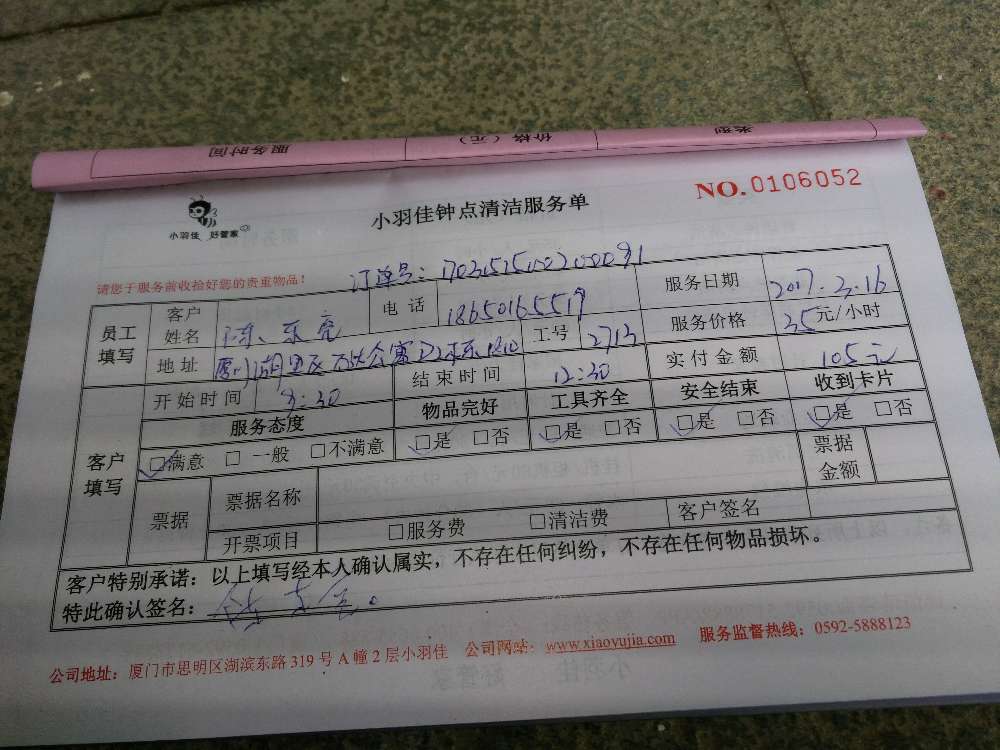 服务时间 价格（元） 类型
NO.0106052
小羽佳 好管家
小羽佳钟点清洁服务单
请您于服务前收拾好您的贵重物品！
订单号：
员工填写 客户姓名 陈东亮 电话 18650165519 服务日期 2017.3.16
地址 厦门湖里区 工号 2713 服务价格 35元/小时
开始时间 9:30 结束时间 12:30 实付金额 105元
客户填写 服务态度 物品完好 工具齐全 安全结束 收到卡片
□满意 □一般 □不满意 □是 □否 □是 □否 □是 □否 □是 □否
票据 票据名称 票据金额
开票项目 □服务费 □清洁费 客户签名
客户特别承诺：以上填写经本人确认属实，不存在任何纠纷，不存在任何物品损坏。
特此确认签名：
公司地址：厦门市思明区湖滨东路319号A幢2层小羽佳 公司网站：www.xiaoyujia.com 服务监督热线：0592-5888123